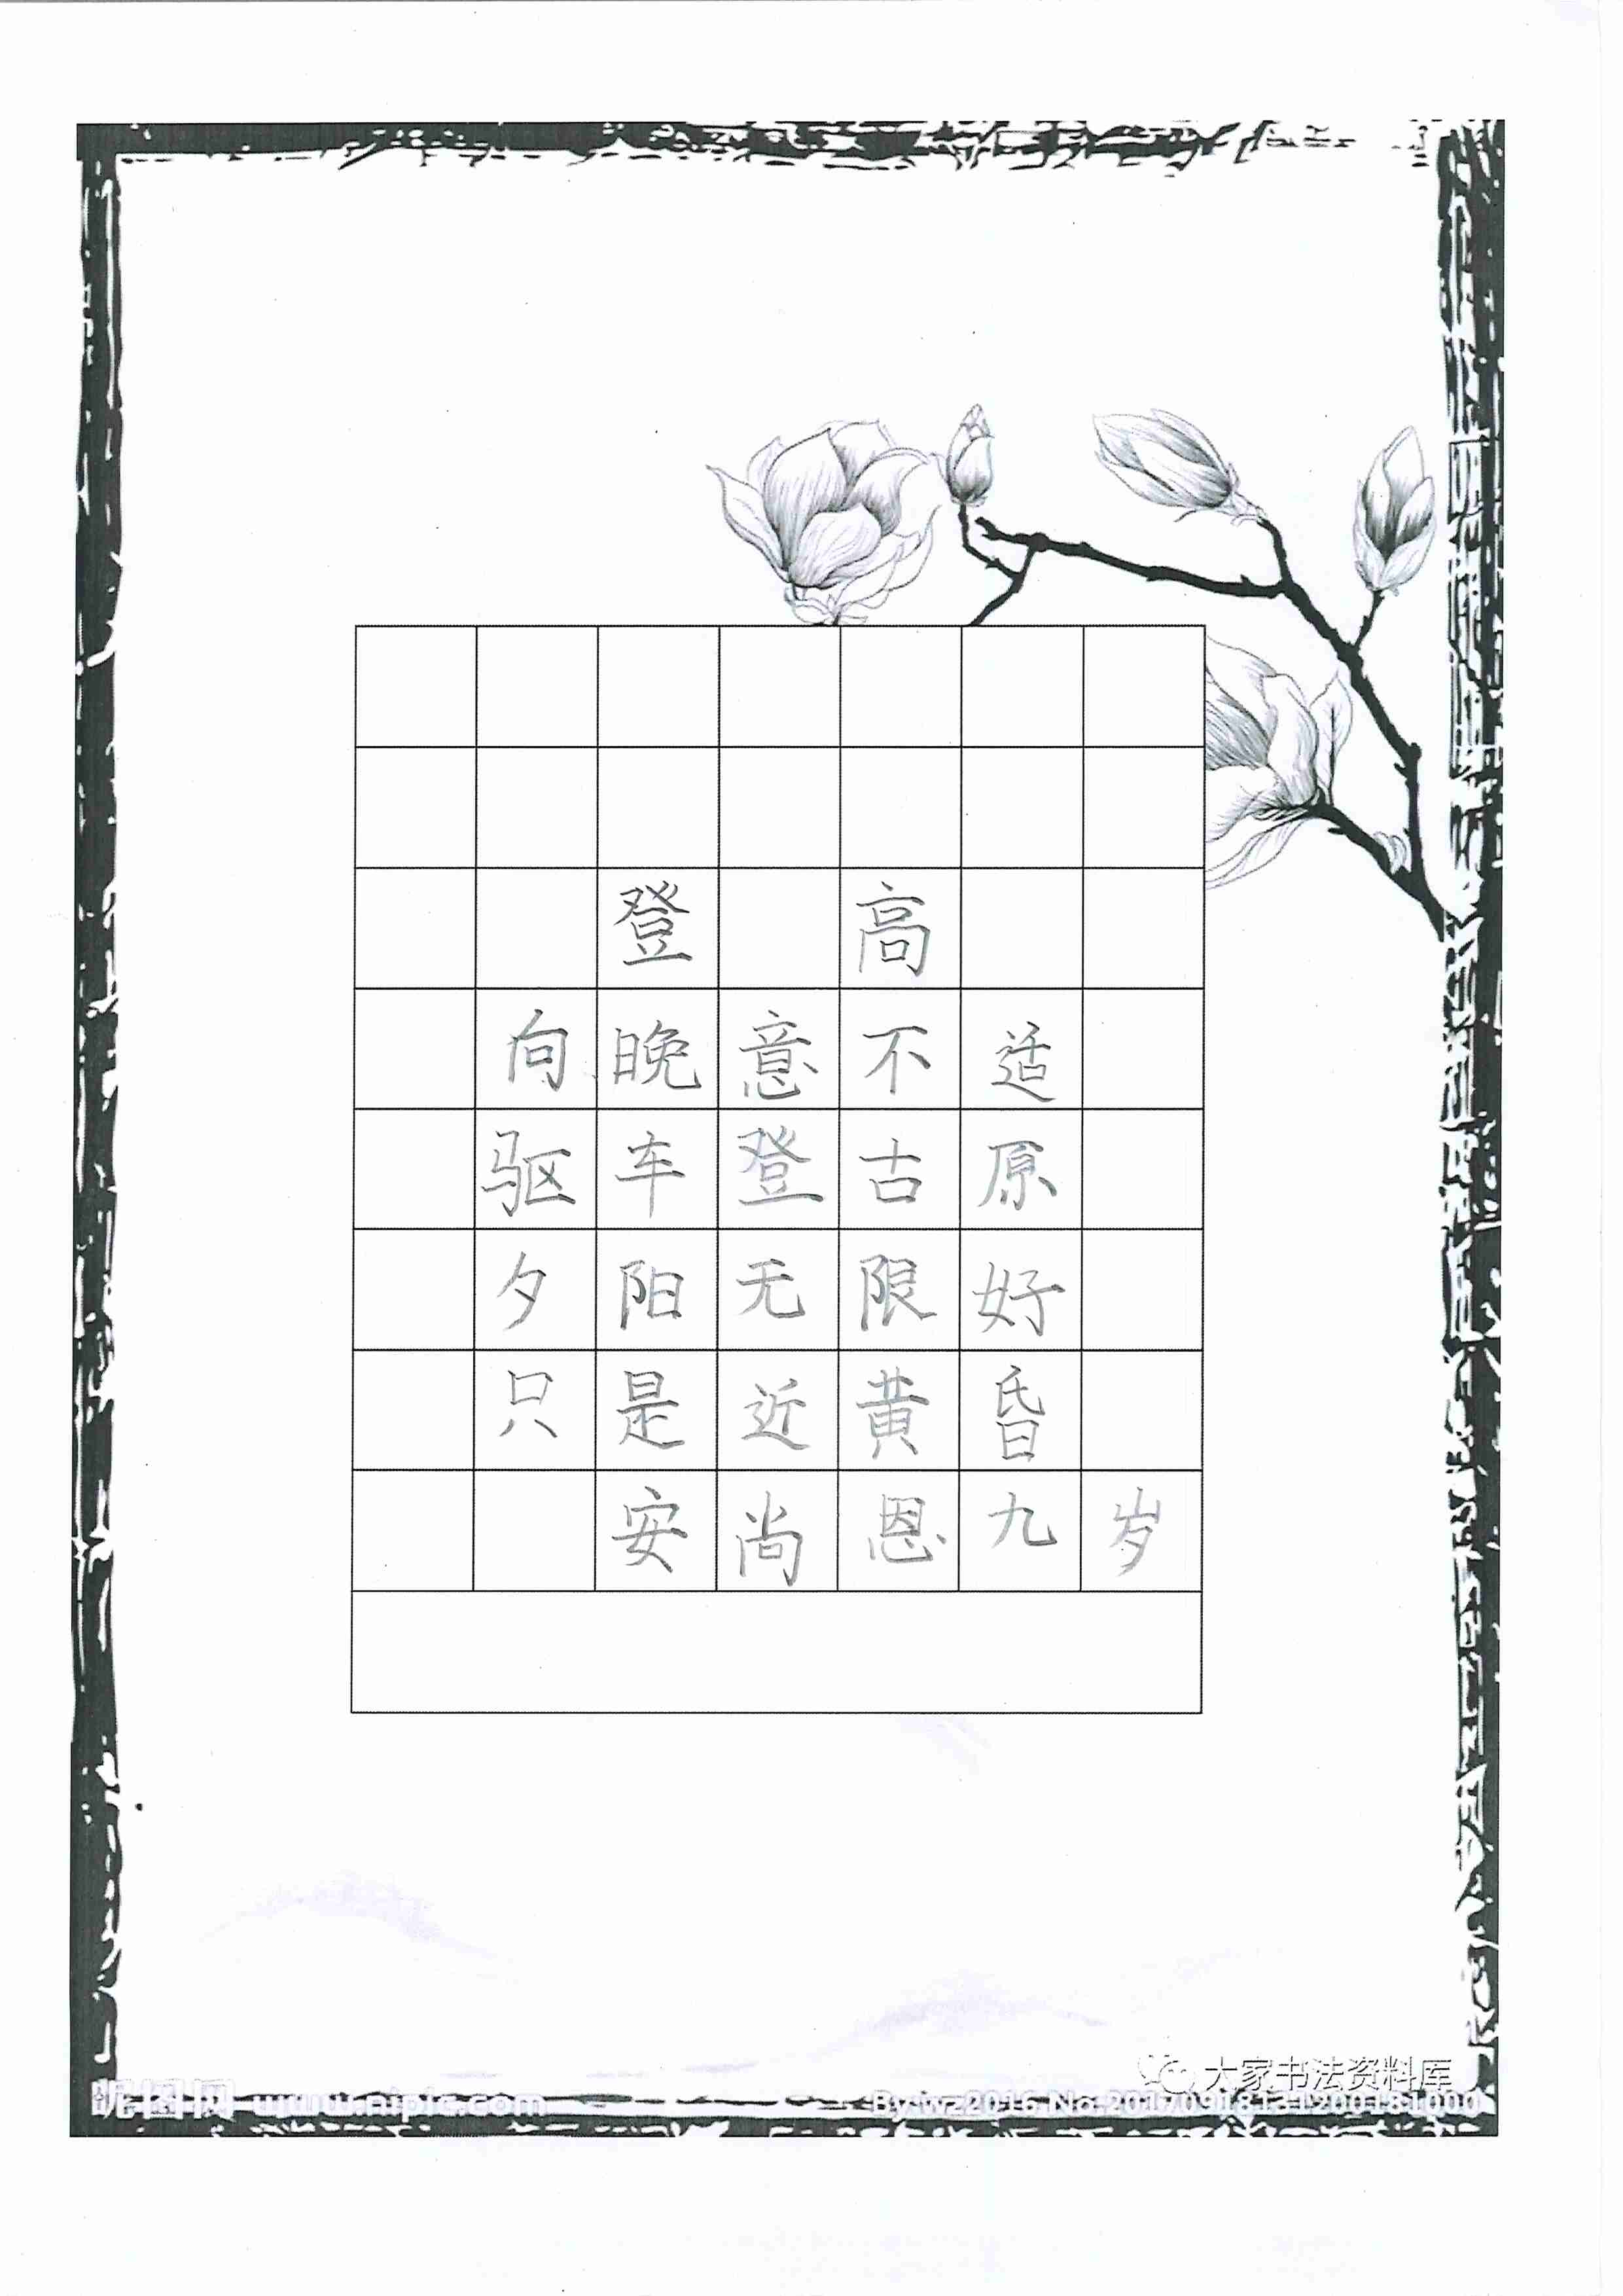 登高
向晚意不适
驱车登古原
夕阳无限好
只是近黄昏
安尚恩九岁
大家书法资料库
昵图网 www.nipic.com
By:wz2016 No.20170918131200181000